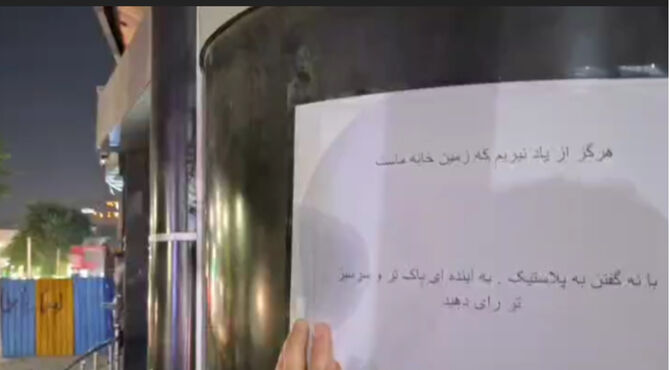 هرگز از یاد نبریم که زمین خانه ماست
با نه گفتن به پلاستیک . به آینده ای پاک تر و سرسبز
تر رای دهید